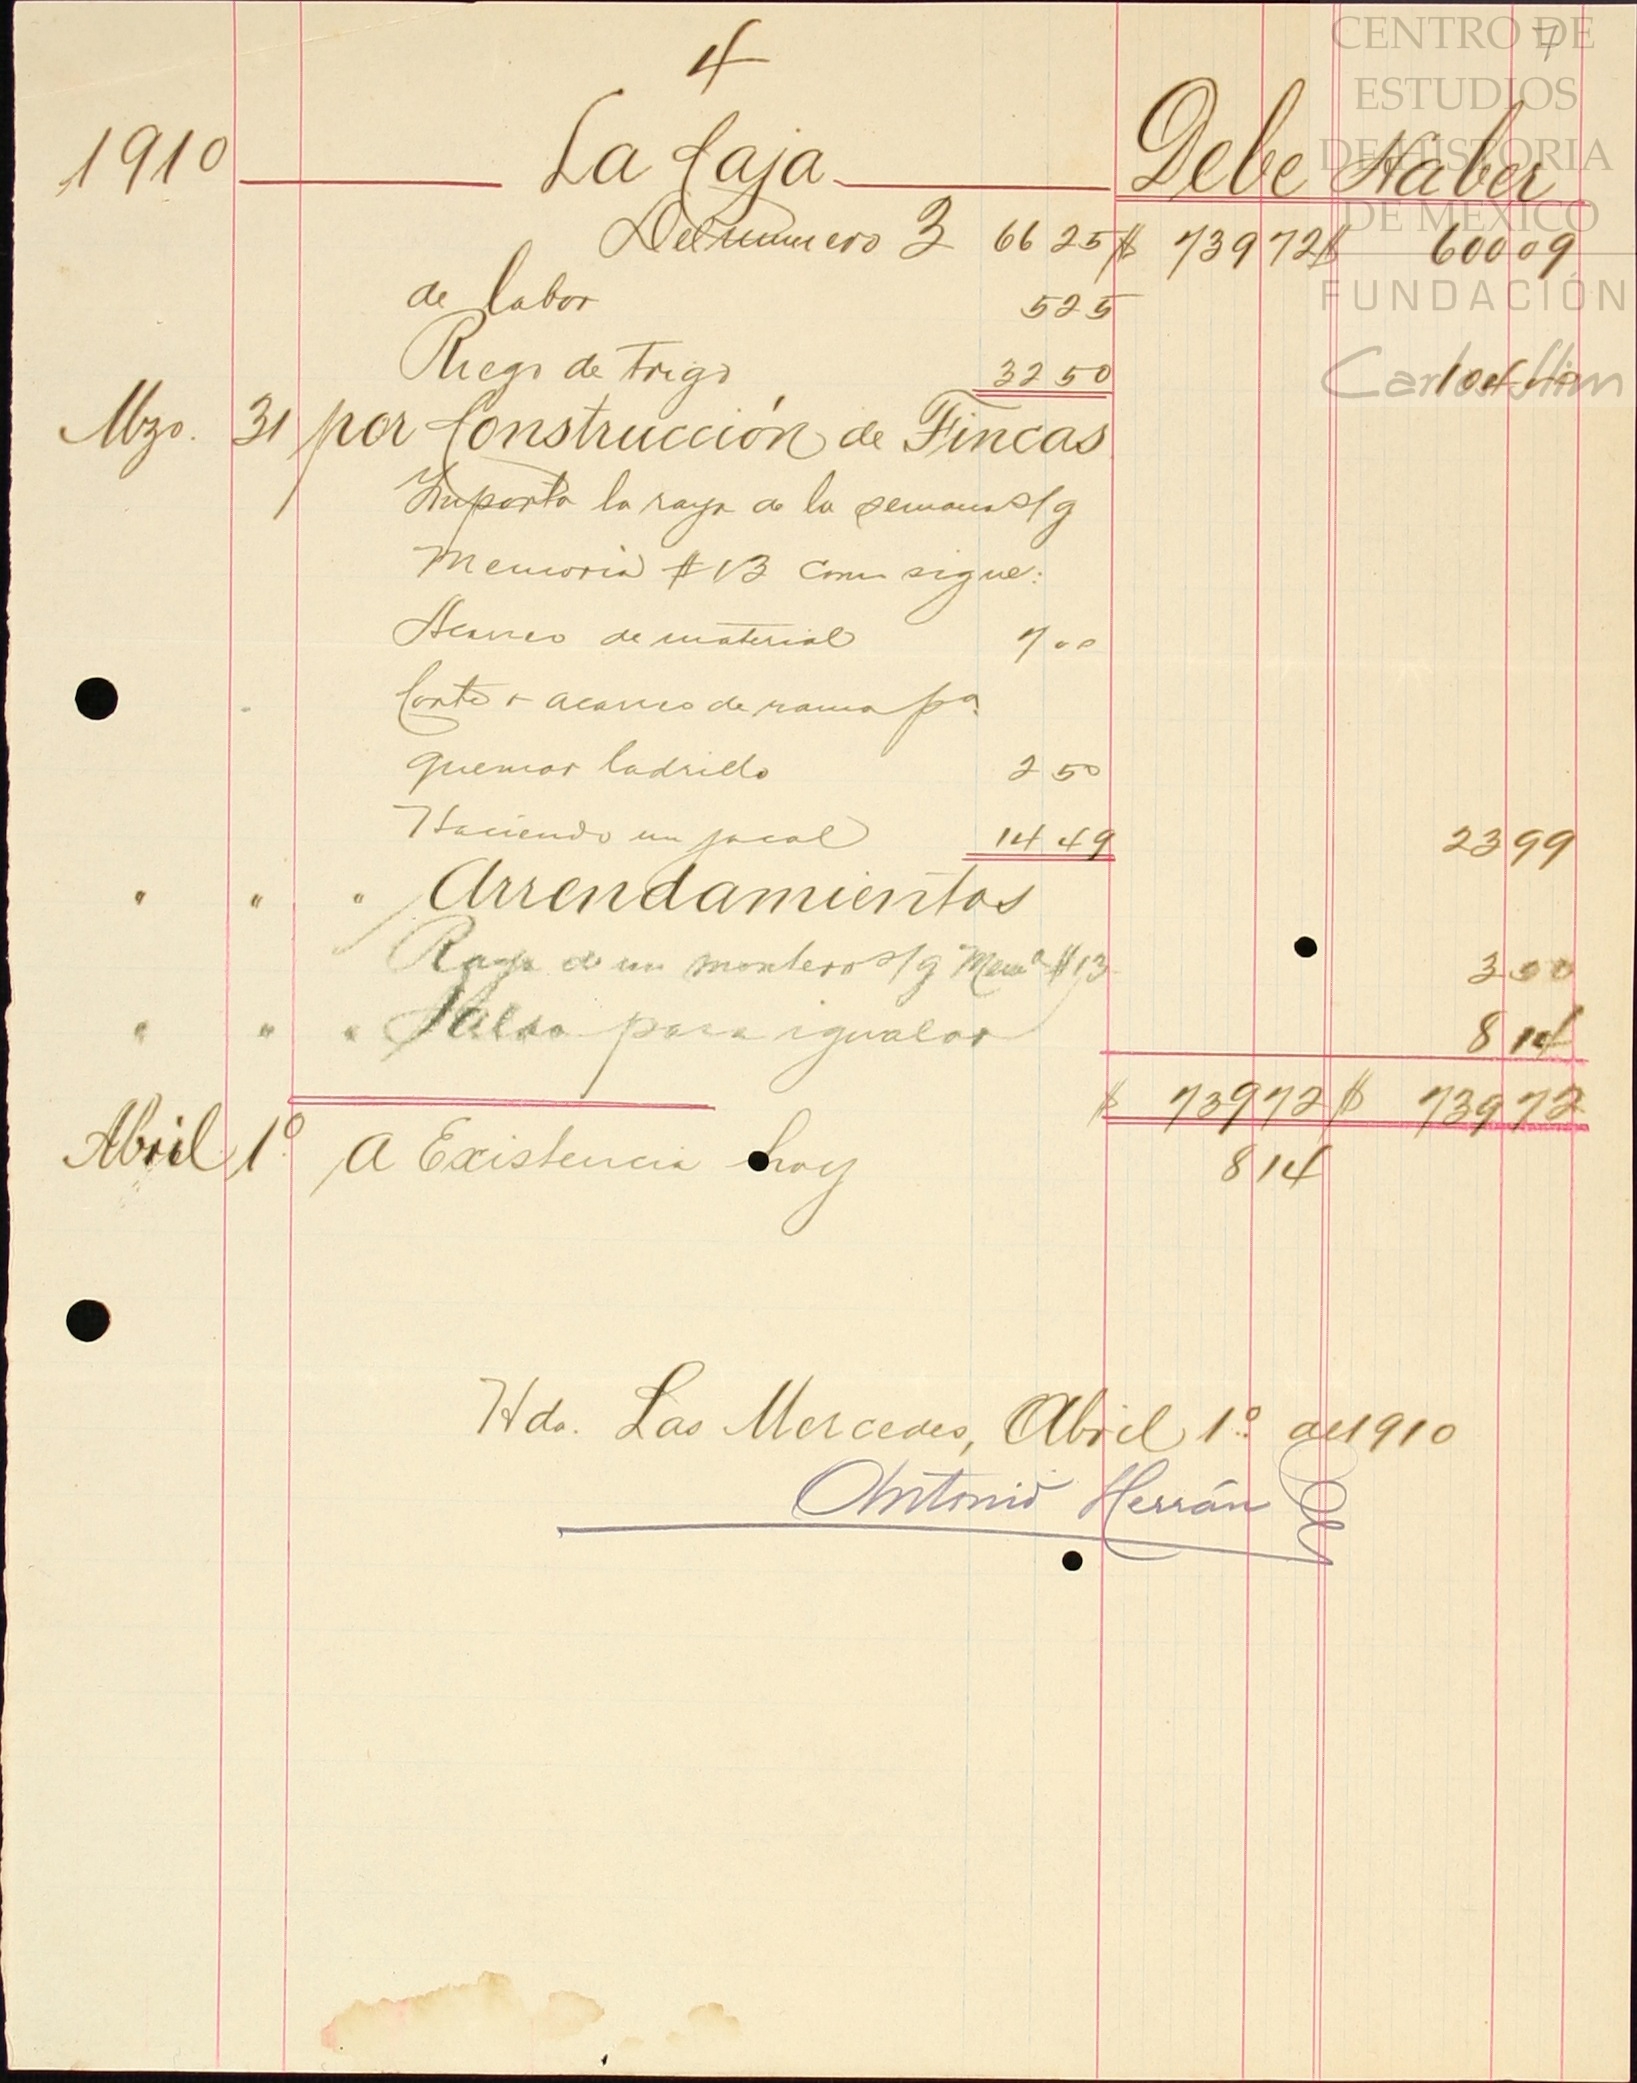 4
7
1910 La Caja Debe Haber
Del numero 3 66 25 $ 739 72 $ 600 09
de labor 5 25
Riego de trigo 32 50
Mzo. 31 por Construcción de Fincas
Importa la raya de la semana s/g
Memoria #13 como sigue:
Acarreo de material 7 00
Corte y acarreo de rama pa.
quemar ladrillo 2 50
Haciendo un jacal 14 49 23 99
" " " Arrendamientos
Raya de un montero s/g Mema #13 3 00
" " " Saldo para igualar 8 14
$ 739 72 $ 739 72
Abril 1º. A Existencia hoy 8 14
Hda. Las Mercedes, Abril 1º. de 1910
Antonio Herrán
CENTRO DE
ESTUDIOS
DE HISTORIA
DE MÉXICO
FUNDACIÓN
Carlos Slim